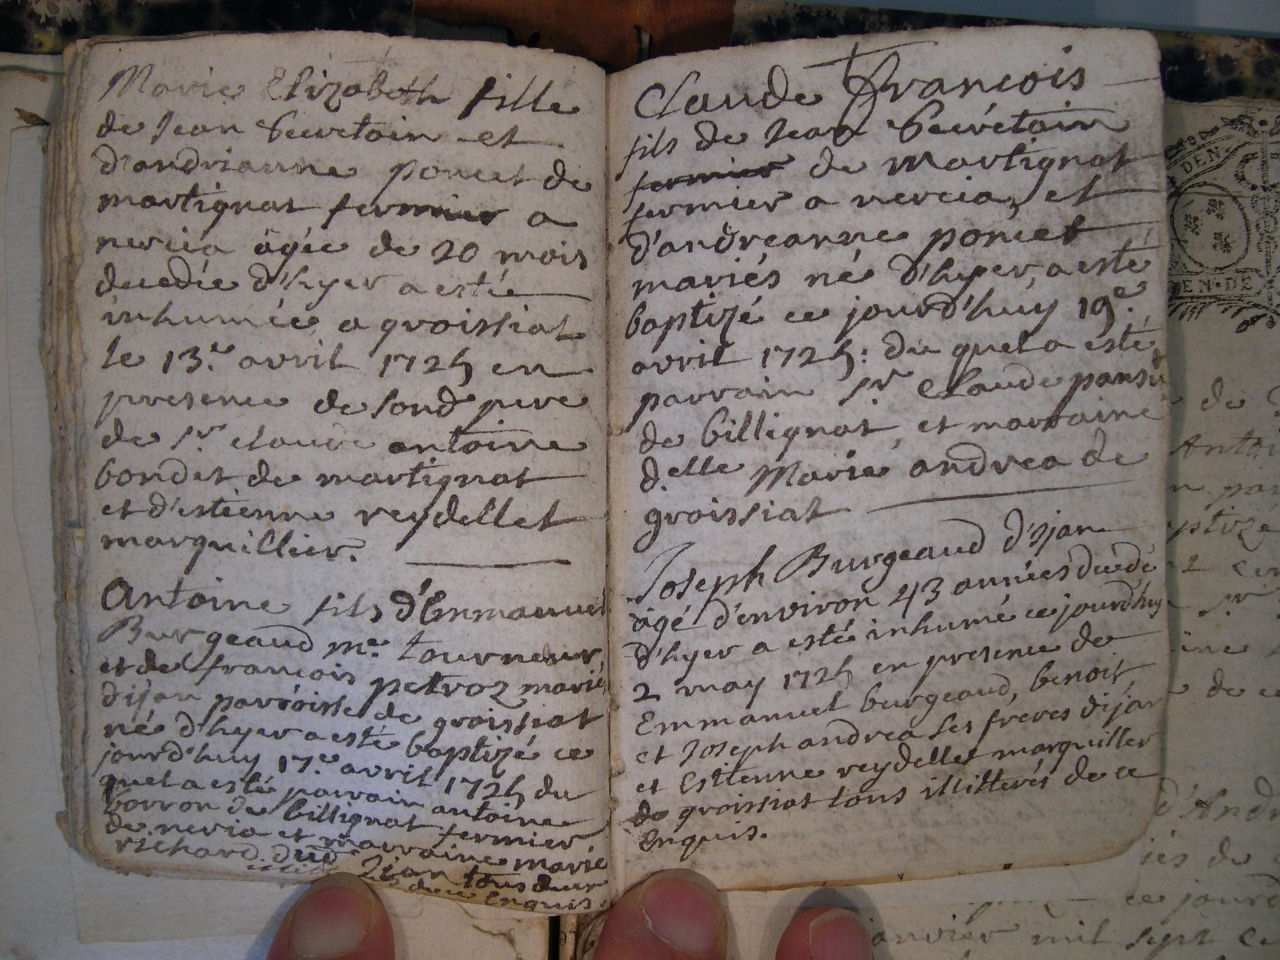 Marie Elizabeth fille
de Jean Secretain et
d'andrianne poncet de
martignat fermier a
nercia âgée de 20 mois
decedée d'hyer a esté
inhumée a groissiat
le 13.e avril 1725 en
presence de sond. pere
de Sr. claude antoine
bondet de martignat
et d'estienne reydellet
marguillier.
Antoine fils d'Emmanuel
Burgeaud me. tourneur,
et de francois petroz mariés
d'ijan parroisse de groissiat
né d'hyer a esté baptizé ce
jourd'huy 17.e avril 1725 du
quel a esté parrain antoine
borron de billignat fermier
de nercia et marraine marie
richard d'ijan tous deux
enquis
Claude François
fils de Jean Secrétain
fermier de martignat
fermier a nercia, et
d'andreanne poncet
mariés né d'hyer, a esté
baptizé ce jourd'huy 19.e
avril 1725: du quel a esté
parrain Sr. Claude
de billignat, et marraine
d.elle Marie andrea de
groissiat
Joseph Burgeaud d'ijan
âgé d'environ 43 années décédé
d'hyer a esté inhumé ce jourd'huy
2 may 1725 en presence de
Emmanuel burgeaud, benoit,
et Joseph andrea ses frères d'ijan
et Estienne reydellet marguiller
de groissiat tous illitterés de ce
enquis.
DEN
EN·DE
de
Antoi
d'And
iés de
ce jourd
janvier mil sept ce